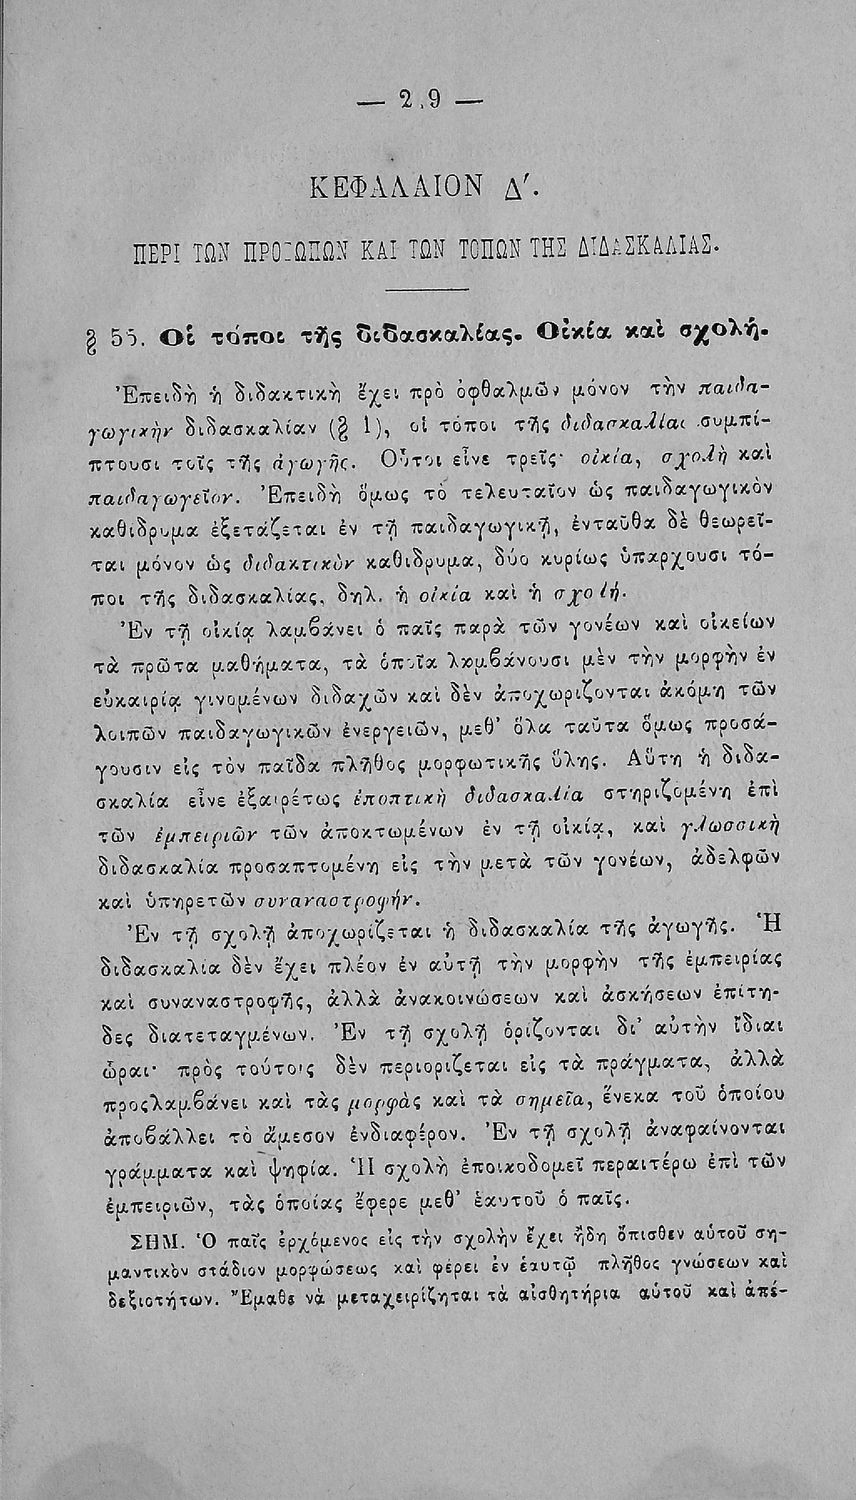 — 2,9 —
ΚΕΦΑΛΑΙΟΝ Δ΄.
ΠΕΡΙ ΤΩΝ ΠΡΟΣΩΠΩΝ ΚΑΙ ΤΩΝ ΤΟΠΩΝ ΤΗΣ ΔΙΔΑΣΚΑΛΙΑΣ.
§ 55. Οἱ τόποι τῆς διδασκαλίας. Οἰκία καὶ σχολή.
Ἐπειδὴ ἡ διδακτικὴ ἔχει πρὸ ὀφθαλμῶν μόνον τὴν παιδα-
γωγικὴν διδασκαλίαν (§ 1), οἱ τόποι τῆς διδασκαλίας συμπί-
πτουσι τοῖς τῆς ἀγωγῆς. Οὗτοι εἶνε τρεῖς· οἰκία, σχολὴ καὶ
παιδαγωγεῖον. Ἐπειδὴ ὅμως τὸ τελευταῖον ὡς παιδαγωγικὸν
καθίδρυμα ἐξετάζεται ἐν τῇ παιδαγωγικῇ, ἐνταῦθα δὲ θεωρεῖ-
ται μόνον ὡς διδακτικὸν καθίδρυμα, δύο κυρίως ὑπάρχουσι τό-
ποι τῆς διδασκαλίας, δηλ. ἡ οἰκία καὶ ἡ σχολή.
Ἐν τῇ οἰκίᾳ λαμβάνει ὁ παῖς παρὰ τῶν γονέων καὶ οἰκείων
τὰ πρῶτα μαθήματα, τὰ ὁποῖα λαμβάνουσι μὲν τὴν μορφὴν ἐν
εὐκαιρίᾳ γινομένων διδαχῶν καὶ δὲν ἀποχωρίζονται ἀκόμη τῶν
λοιπῶν παιδαγωγικῶν ἐνεργειῶν, μεθ' ὅλα ταῦτα ὅμως προσά-
γουσιν εἰς τὸν παῖδα πλῆθος μορφωτικῆς ὕλης. Αὕτη ἡ διδα-
σκαλία εἶνε ἐξαιρέτως ἐποπτικὴ διδασκαλία στηριζομένη ἐπὶ
τῶν ἐμπειριῶν τῶν ἀποκτωμένων ἐν τῇ οἰκίᾳ, καὶ γλωσσικὴ
διδασκαλία προσαπτομένη εἰς τὴν μετὰ τῶν γονέων, ἀδελφῶν
καὶ ὑπηρετῶν συναναστροφήν.
Ἐν τῇ σχολῇ ἀποχωρίζεται ἡ διδασκαλία τῆς ἀγωγῆς. Ἡ
διδασκαλία δὲν ἔχει πλέον ἐν αὐτῇ τὴν μορφὴν τῆς ἐμπειρίας
καὶ συναναστροφῆς, ἀλλὰ ἀνακοινώσεων καὶ ἀσκήσεων ἐπίτη-
δες διατεταγμένων. Ἐν τῇ σχολῇ ὁρίζονται δι' αὐτὴν ἴδιαι
ὧραι· πρὸς τούτοις δὲν περιορίζεται εἰς τὰ πράγματα, ἀλλὰ
προςλαμβάνει καὶ τὰς μορφὰς καὶ τὰ σημεῖα, ἕνεκα τοῦ ὁποίου
ἀποβάλλει τὸ ἄμεσον ἐνδιαφέρον. Ἐν τῇ σχολῇ ἀναφαίνονται
γράμματα καὶ ψηφία. Ἡ σχολὴ ἐποικοδομεῖ περαιτέρω ἐπὶ τῶν
ἐμπειριῶν, τὰς ὁποίας ἔφερε μεθ' ἑαυτοῦ ὁ παῖς.
ΣΗΜ. Ὁ παῖς ἐρχόμενος εἰς τὴν σχολὴν ἔχει ἤδη ὄπισθεν αὑτοῦ ση-
μαντικὸν στάδιον μορφώσεως καὶ φέρει ἐν ἑαυτῷ πλῆθος γνώσεων καὶ
δεξιοτήτων. Ἔμαθε νὰ μεταχειρίζηται τὰ αἰσθητήρια αὑτοῦ καὶ ἀπέ-